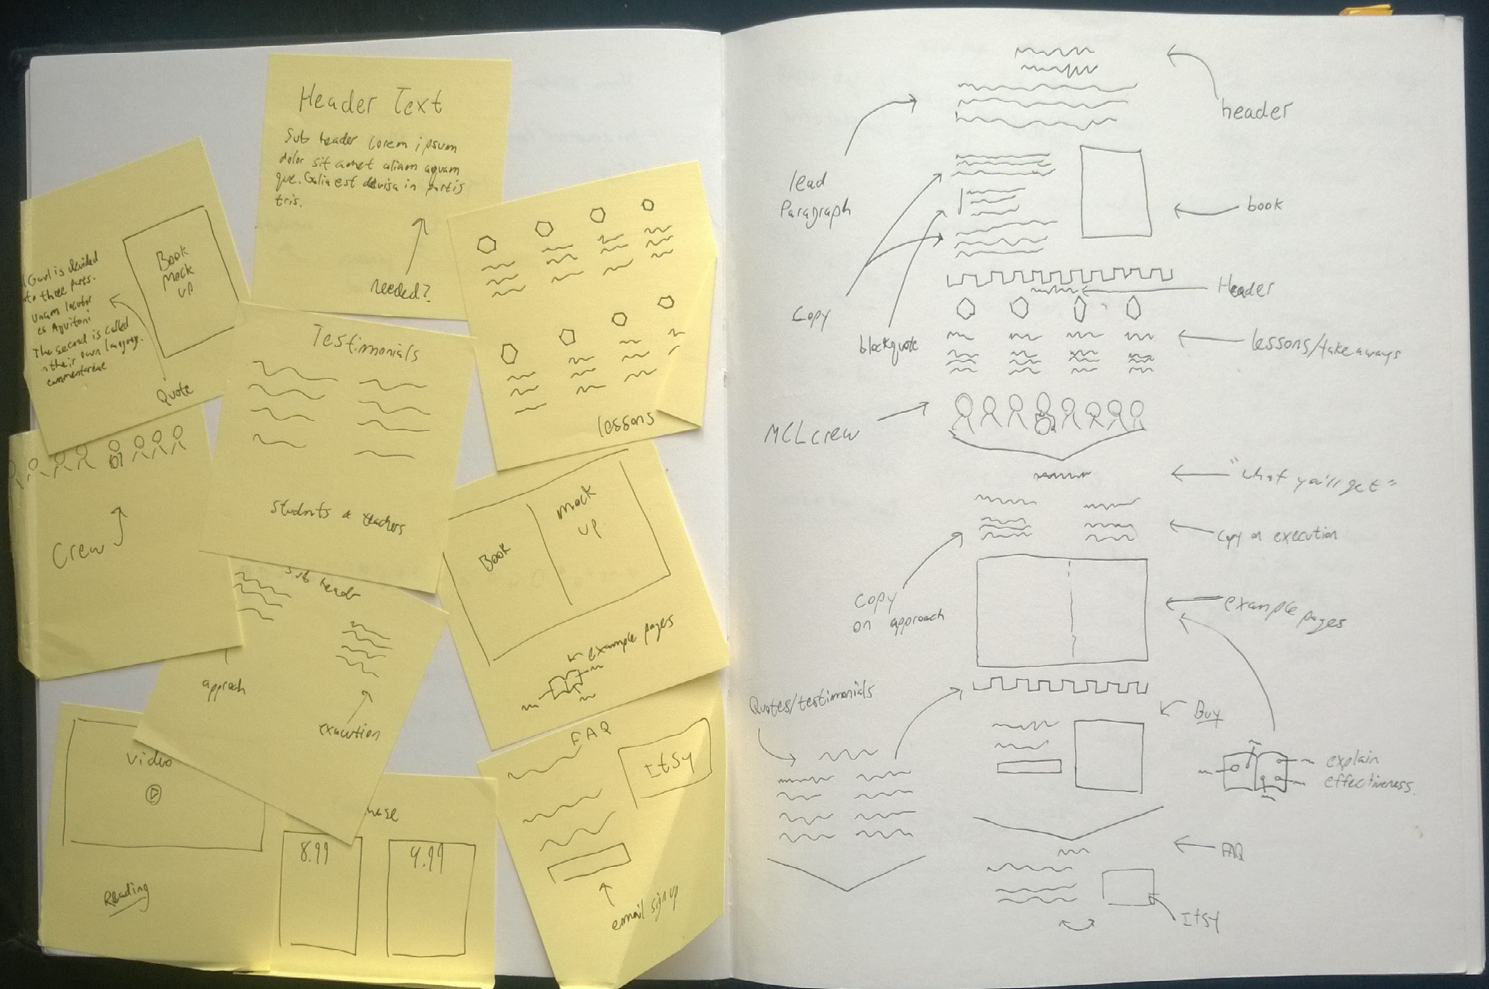 Header Text
Sub header lorem ipsum
dolor sit amet aliam aquam
que. Galia est devisa in partis
tris.
needed?
Book
Mock
up
Gaul is devided
to three parts.
Unam
Aquitani
The second is called
their own language.
Quote
Testimonials
students & teachers
lessons
Crew
Book
mock
up
example pages
Sub header
approach
execution
Video
Reading
8.99
4.99
FAQ
Itsy
email sign up
header
lead
Paragraph
book
Copy
blockquote
Header
lessons/takeaways
MCL crew
"what you'll get"
copy on execution
Copy
on approach
example pages
Quotes/testimonials
Buy
explain
effectiveness
FAQ
Itsy